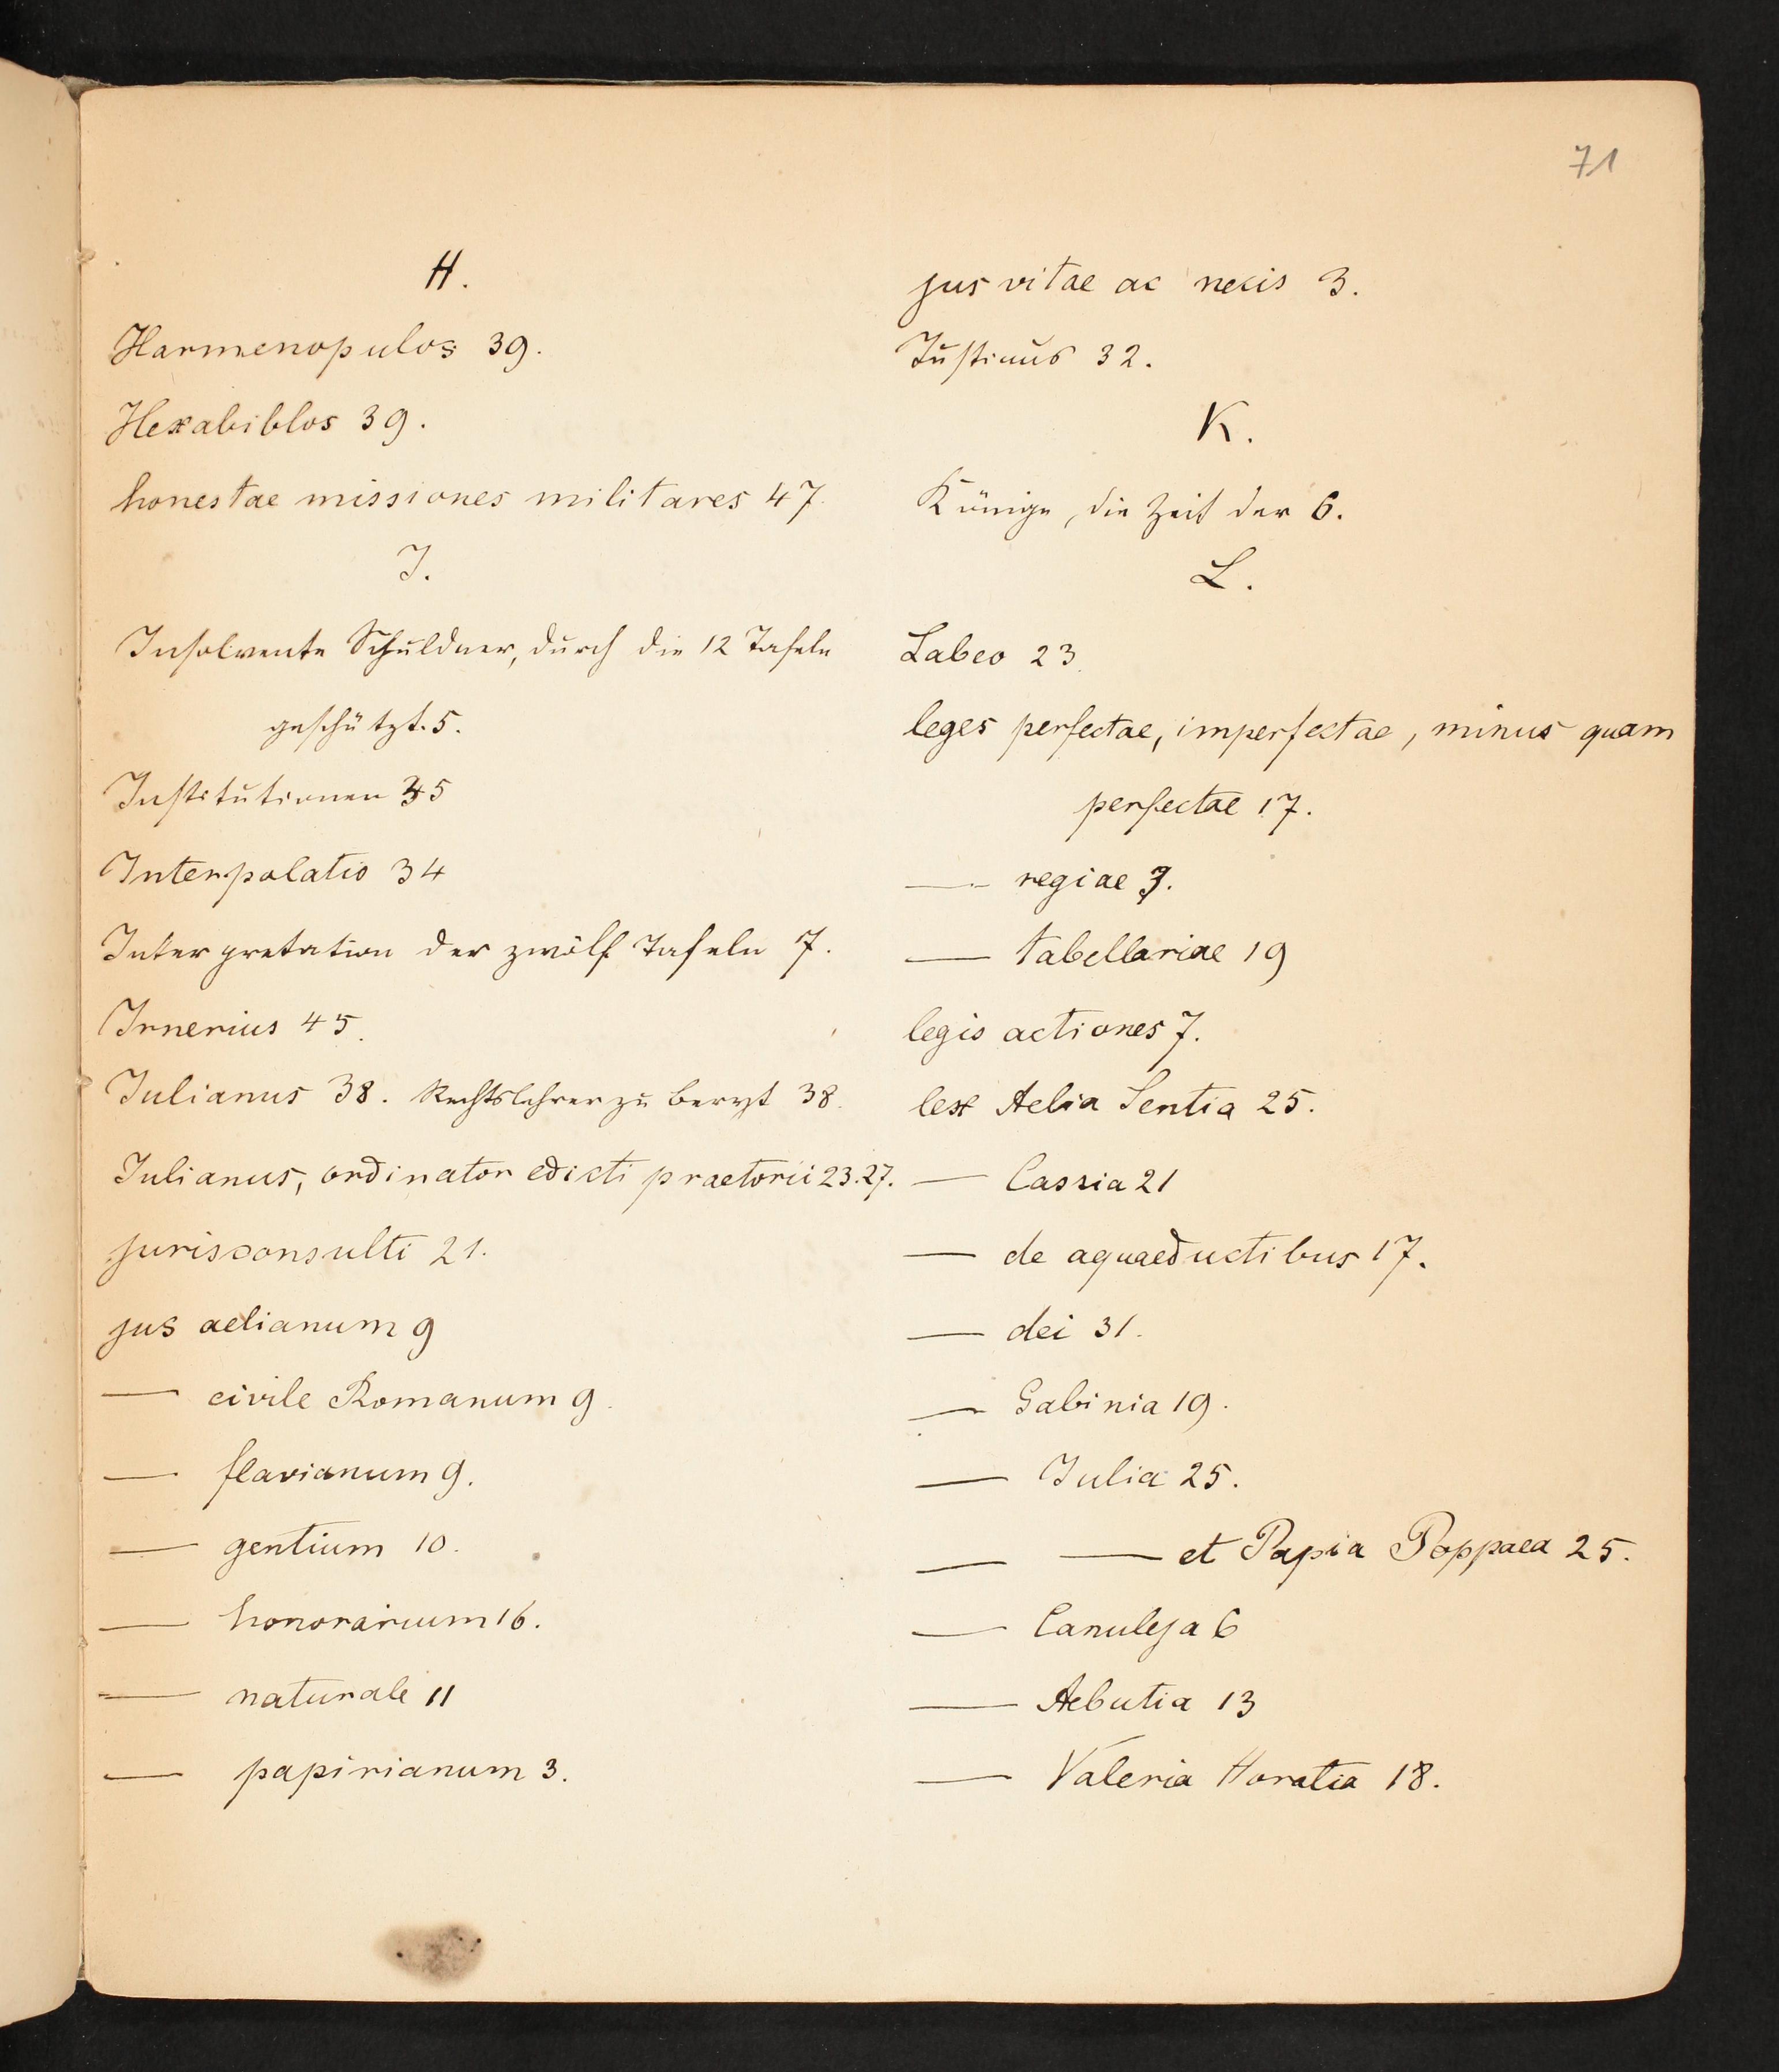 71
H.
Harmenopulos 39.
Hexabiblos 39.
honestae missiones militares 47.
I.
Insolvente Schuldner, durch die 12 Tafeln
geschützt. 5.
Institutionen 35
Interpolatio 34
Interpretation der zwölf Tafeln 7.
Irnerius 45.
Iulianus 38. Rechtslehrer zu Beryt 38.
Iulianus, ordinator edicti praetorii 23.27.
jurisconsulti 21.
jus aelianum 9
— civile Romanum 9.
— flavianum 9.
— gentium 10.
— honorarium 16.
— naturale 11
— papirianum 3.
jus vitae ac necis 3.
Justinus 32.
K.
Könige, die Zeit der 6.
L.
Labeo 23.
leges perfectae, imperfectae, minus quam
perfectae 17.
— regiae 3.
— tabellariae 19
legis actiones 7.
lex Aelia Sentia 25.
— Cassia 21
— de aquaeductibus 17.
— dei 31.
— Gabinia 19.
— Iulia 25.
— — et Papia Poppaea 25.
— Canuleja 6
— Aebutia 13
— Valeria Horatia 18.